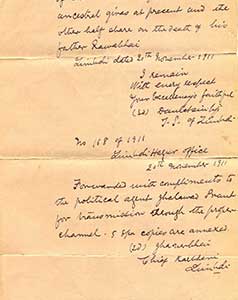 ancestral giras at present and the
other half share on the death of his
father Rawabhai
Limbdi dated 20th November 1911
I remain
With every respect
Your Excellency's faithful
(Sd) Daulatsinhji
T.S. of Limbdi
No 168 of 1911
Limbdi Hazur office
20th November 1911
Forwarded with compliments to
the political agent Jhalawad Prant
for transmission through the proper
channel. 5 spa copies are annexed.
(Sd) Jhaverbhai
Chief Karbhari
Limbdi